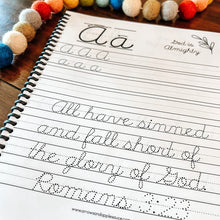 Aa
God is
Almighty
a a a
a a a
All have sinned
and fall short of
the glory of God.
Romans 3:23